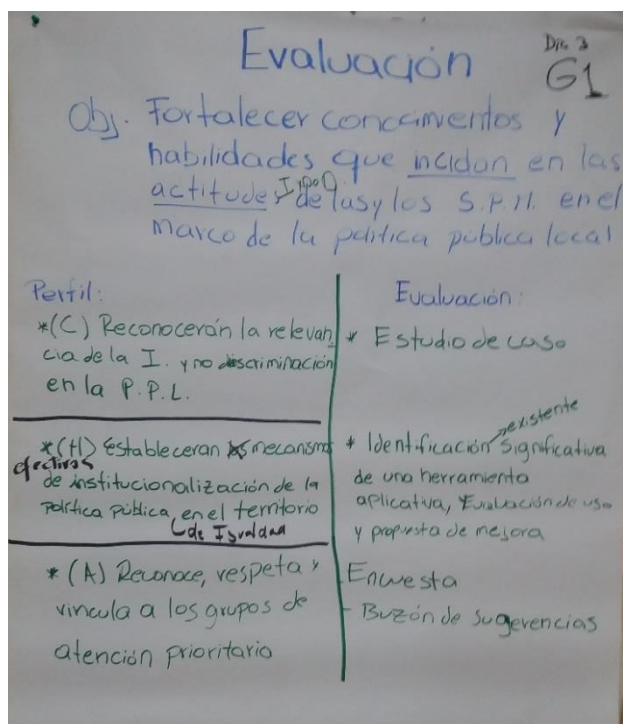 Evaluación
Dic 3
G1
Obj. Fortalecer conocimientos y
habilidades que incidan en las
actitudes de las y los S.P.N. en el
marco de la política pública local
Perfil:
*(C) Reconocerán la relevan
cia de la I. y no discriminación
en la P.P.L.
*(H) Estableceran mecanismos
efectivos
de institucionalización de la
política pública en el territorio
de Igualdad
*(A) Reconoce, respeta y
vincula a los grupos de
atención prioritario
Evaluación:
* Estudio de caso
existente
* Identificación significativa
de una herramienta
aplicativa, Evaluación de uso
y propuesta de mejora
Encuesta
- Buzón de sugerencias